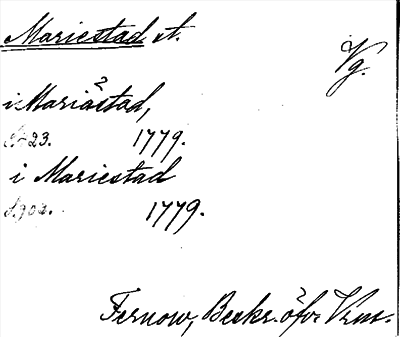 Mariestad st.
Vg.
i Mariåstad,
S. 23. 1779.
i Mariestad
S. 902. 1779.
Fernow, Beskr. öfver Vrml.